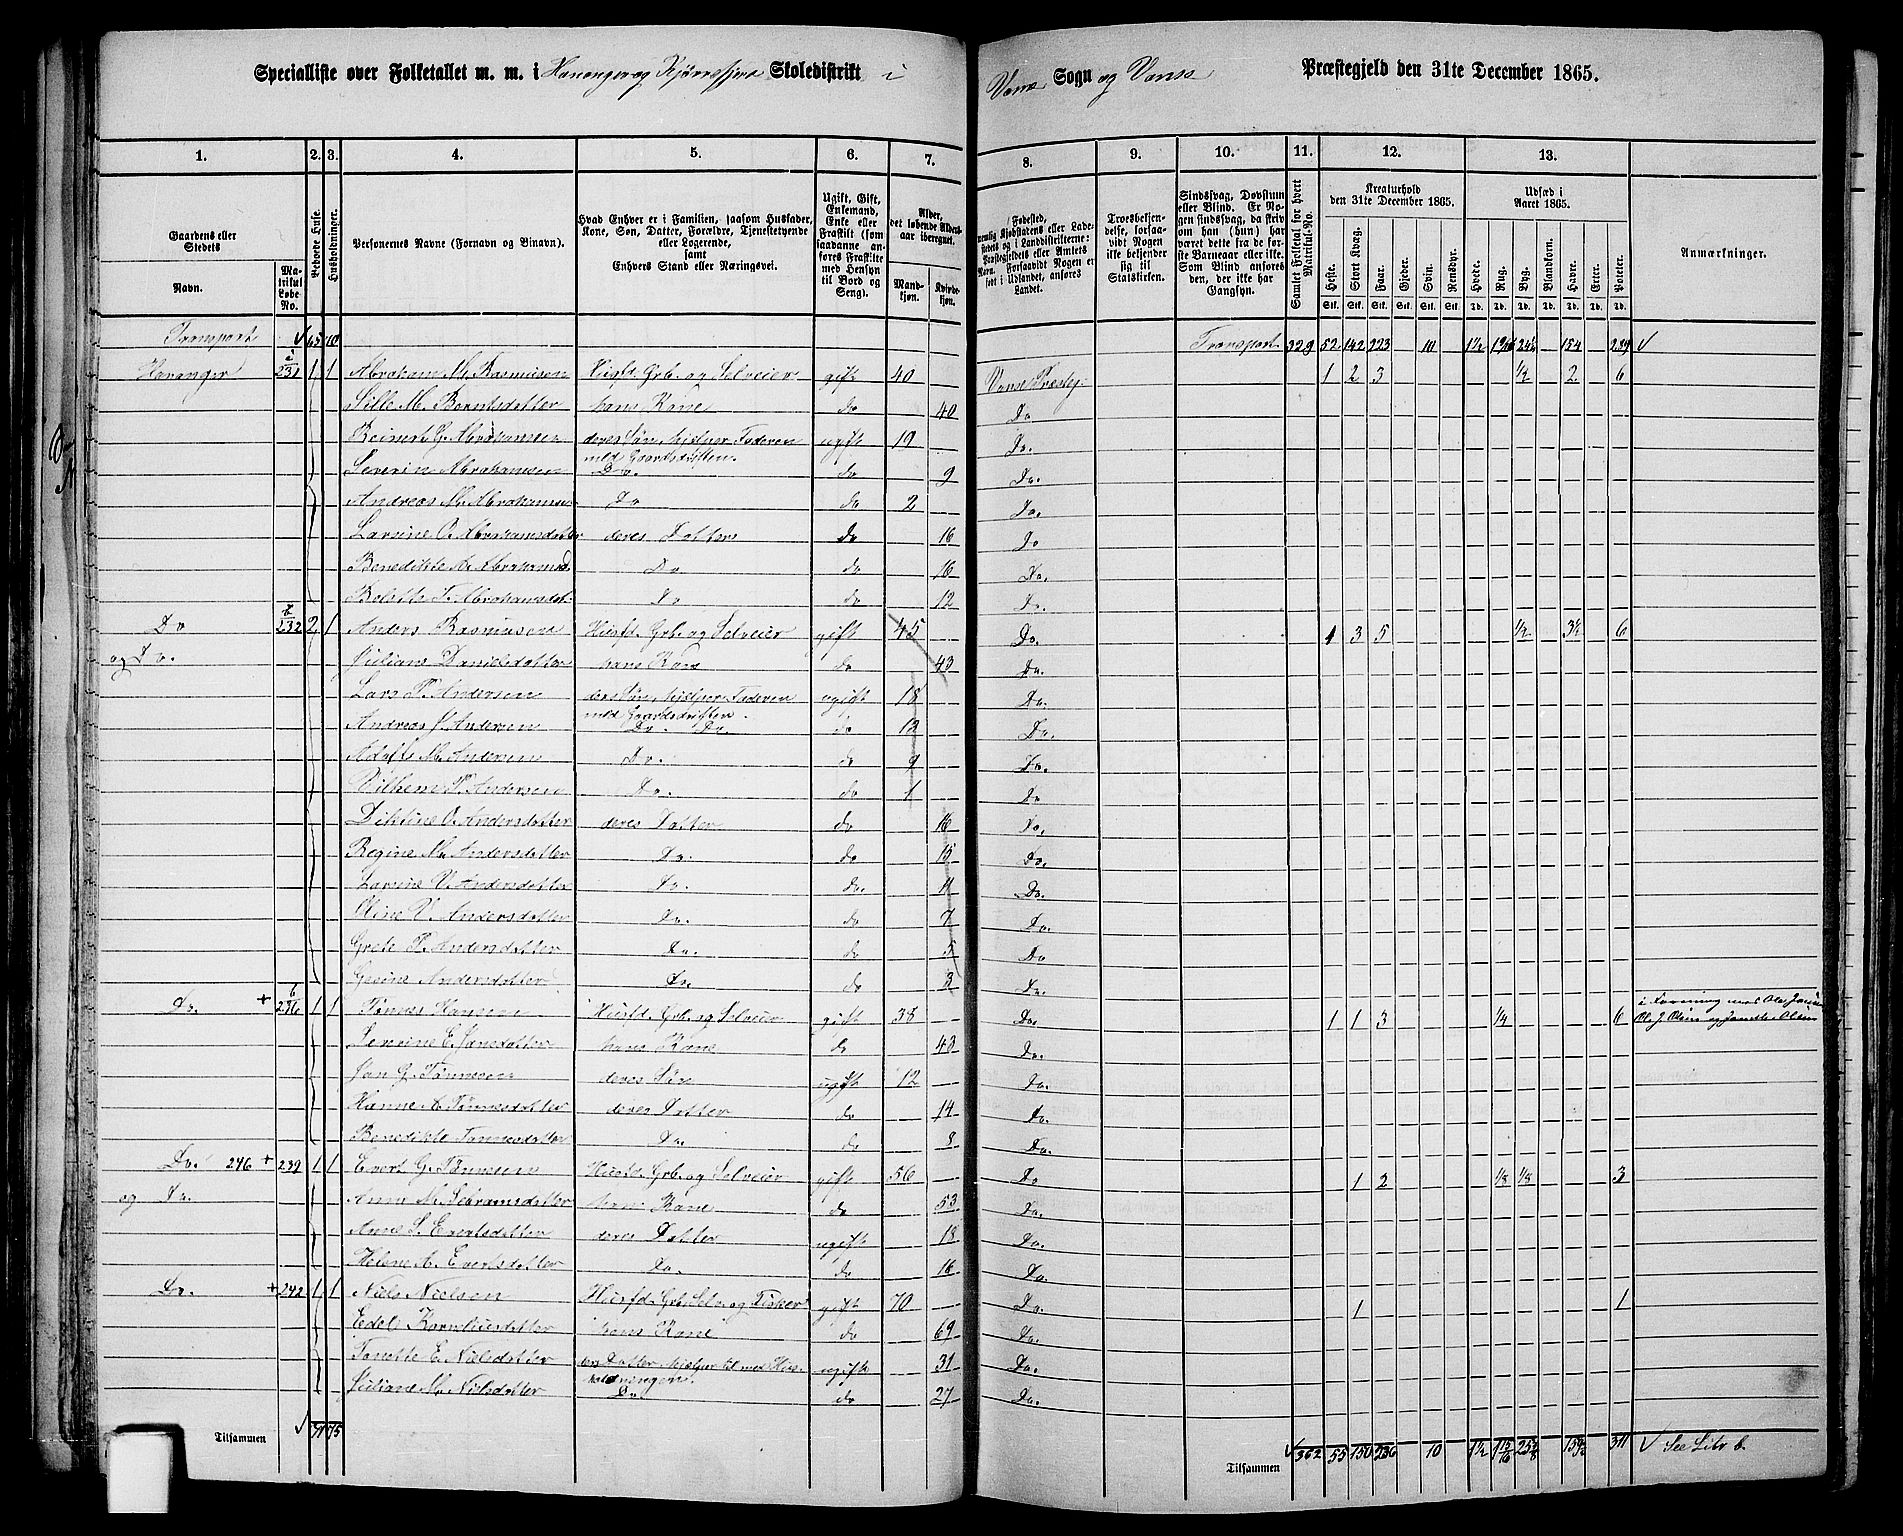 Specialliste over Folketallet m. m. i Skoledistrikt i
Vanse Sogn og Vanse Præstegjeld den 31te December 1865.
1. 2. 3. 4. 5. 6. 7. 8. 9. 10. 11. 12. 13.
Gaardens eller Stedets
Navn.
Matrikul Løbe No.
Beboede Huse.
Husholdninger.
Personernes Navne (Fornavn og Binavn).
Hvad Enhver er i Familien, saasom Husfader, Kone, Søn, Datter, Forældre, Tjenestetyende eller Logerende, samt Enhvers Stand eller Næringsvei.
Ugift, Gift, Enkemand, Enke eller Fraskilt (som saadanne anføres Fraskilte med Hensyn til Bord og Seng).
Alder, det løbende Aldersaar iberegnet.
Mandkjøn. Kvindekjøn.
Troesbekjendelse, forsaavidt Nogen ikke bekjender sig til Statskirken.
Samlet Folketal for hvert Matrikul-No.
Kreaturhold den 31te December 1865.
Heste. Stort Kvæg. Faar. Gjeder. Svin. Rensdyr.
Udsæd i Aaret 1865.
Hvede. Rug. Byg. Blandkorn. Havre. Erter. Poteter.
Anmærkninger.
Transport 65 70 Transport 329 52 142 223 10 1½ 154 289
Haranger 231 1 1 Abraham M. Rasmussen Husfd. Grb. og Selveier gift 40 Vanse Prestej. 1 2 3 ½ 2 6
Sille M. Berntsdatter hans Kone do 40 Do
Reinert G. Abrahamsen deres Søn, hielper Faderen med Gaardsdriften. ugift 19 Do.
Severin Abrahamsen Do. do 9 Do.
Andreas M. Abrahamsen Do do 2 Do.
Larsine O. Abrahamsdatter deres Datter do 16 Do
Benedikte A. Abrahamsd. Do do 16 Do.
Bolette T. Abrahamsdt. Do do 12 Do.
Do 232 2 1 Anders Rasmussen Husfd. Grb. og Selveier gift 45 Do. 1 3 5 ½ 3½ 6
og Do. Juliane Danielsdatter hans Kone do 43 Do.
Lars P. Andersen deres Søn, hielper Faderen med Gaardsdriften. ugift 18 Do.
Andreas J. Andersen Do. Do. do 12 Do.
Adolf M. Andersen Do. do 9 Do.
Vilhem P. Andersen Do. do 1 Do
Dikline O. Andersdatter deres Datter do 16 Do.
Regine M. Andersdatter Do. do 15 Do.
Larsine V. Andersdatter Do. do. 11 Do.
Oline V. Andersdatter Do. do 7 Do.
Grete P. Andersdatter Do. do 5 Do
Gesine Andersdatter Do. do 3 Do.
Do. + 236 1 1 Tønnes Hansen Husfd. Grb. og Selveier gift 38 Do. 1 1 3 ¼ 6
Severine E. Jansdatter hans Kone do 43 Do.
Jan G. Tønnesen deres Søn ugift 12 Do.
Hanne A. Tønnesdatter deres Datter do 14 Do.
Benedikte Tønnesdatter Do. do 8 Do.
Do. 246 + 239 1 1 Evert G. Tønnesen Husfd. Grb. og Selveier gift 56 Do 1 2 ⅛ ⅛ 3
og Do. Anne M. Sebramsdatter hans Kone do 53 Do.
Anne S. Evertsdatter deres Datter ugift 18 Do.
Helene A. Evertsdatter Do. do 16 Do.
Do. + 242 1 1 Niels Nielsen Husfd. Grb. Selv. og Fisker gift 70 Do. 1 1
Edel Korneliusdatter hans Kone do 69 Do.
Tonette E. Nielsdatter ders Datter, hielper til med Husholdningen. ugift 31 Do.
Juliane M. Nielsdatter Do. do 27 Do.
Tilsammen 71 75 Tilsammen 362 55 150 236 10 1½ 311 See Litr b.